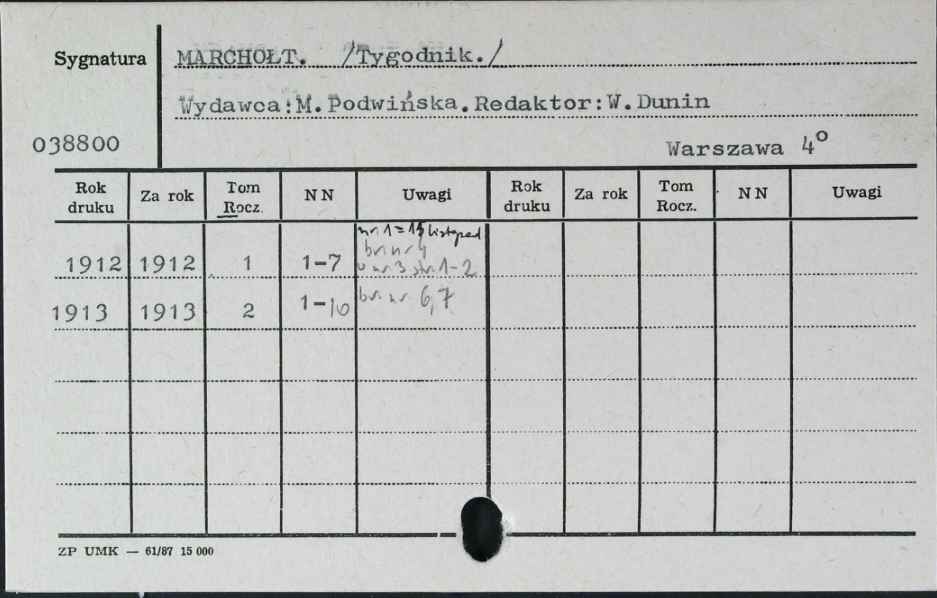 Sygnatura MARCHOŁT. /Tygodnik./
Wydawca:M.Podwińska.Redaktor:W.Dunin
038800 Warszawa 4°
Rok druku Za rok Tom Rocz. NN Uwagi Rok druku Za rok Tom Rocz. NN Uwagi
nr 1 = 15 listopad
br. nr 4
1912 1912 1 1-7 w nr 3 str. 1-2
1913 1913 2 1-10 br. nr 6,7
ZP UMK — 61/87 15 000